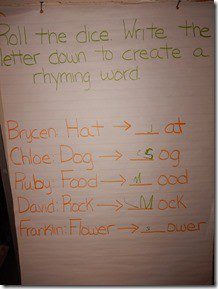 Roll the dice. Write the
letter down to create a
rhyming word
Brycen: Hat → __ at
Chloe: Dog → S og
Ruby: Food → __ ood
David: Rock → M ock
Franklin: Flower → s ower